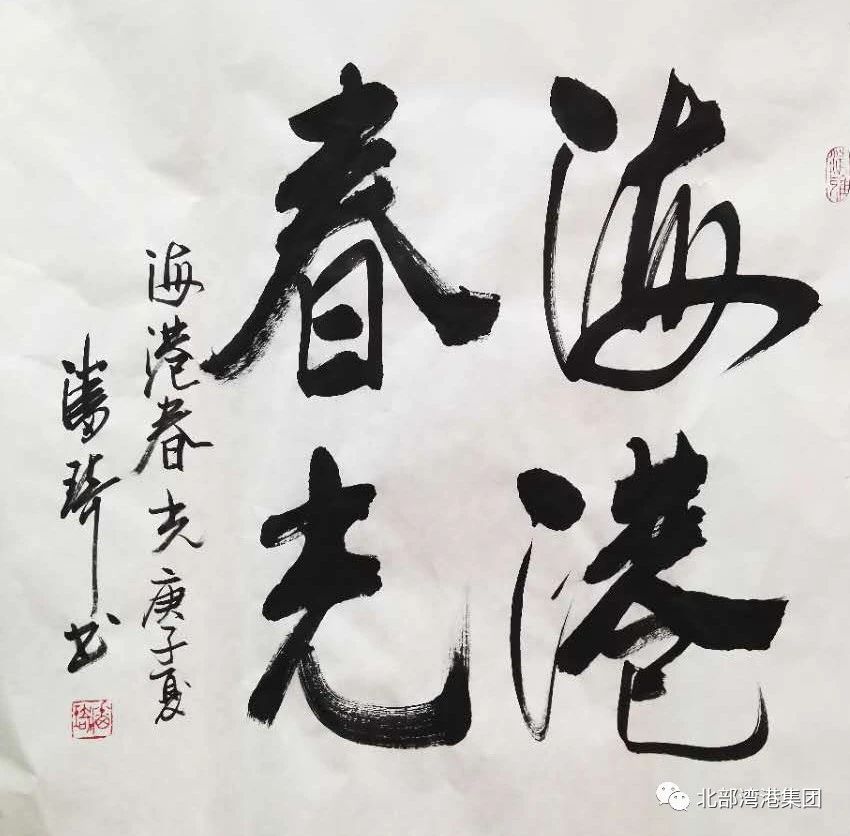 海港
春光
海港春光庚子夏
琦书
北部湾港集团